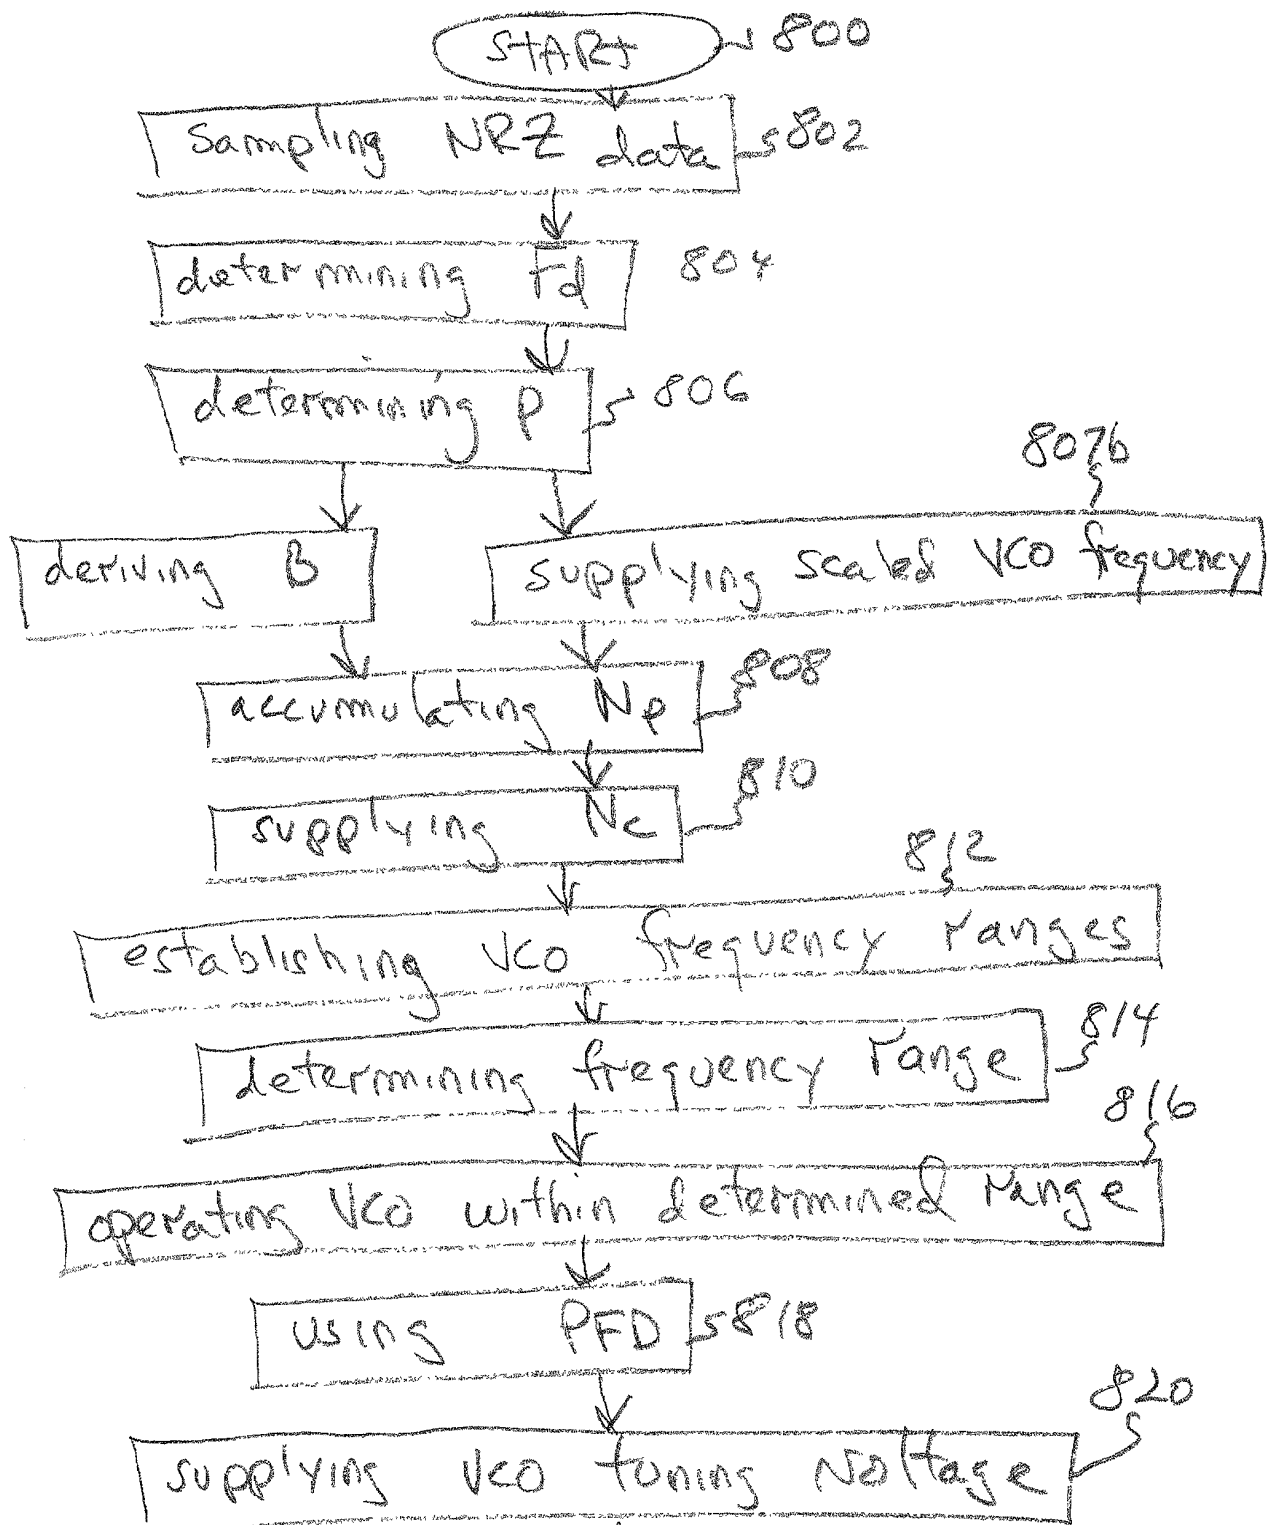 START 800
Sampling NRZ data 802
determining Fd 804
determining P 806
807b
deriving B
supplying scaled VCO frequency
accumulating Np 808
supplying Nc 810
812
establishing VCO frequency ranges
determining frequency range 814
816
operating VCO within determined range
using PFD 818
820
supplying VCO tuning Voltage